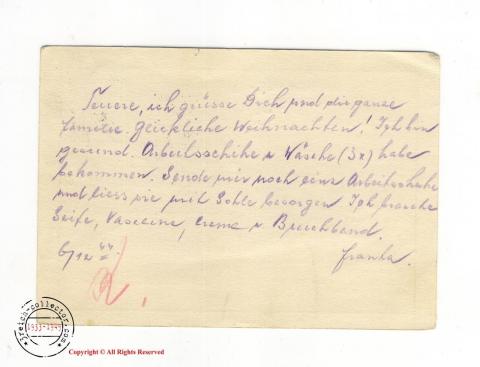 Teuere, ich grüsse Dich und die ganze
familie. Glückliche Weihnachten! Ich bin
gesund. Arbeitsschihe u Wäsche (3x) habe
bekommen. Sende mir noch eine Arbeitsschuhe
und liess sie mit Sohle besorgen Ich brauche
Seife, Vaseline, Creme u Bruchband.
6/12 44
Franta.
3reich-collector.com
1933-1945
Copyright © All Rights Reserved